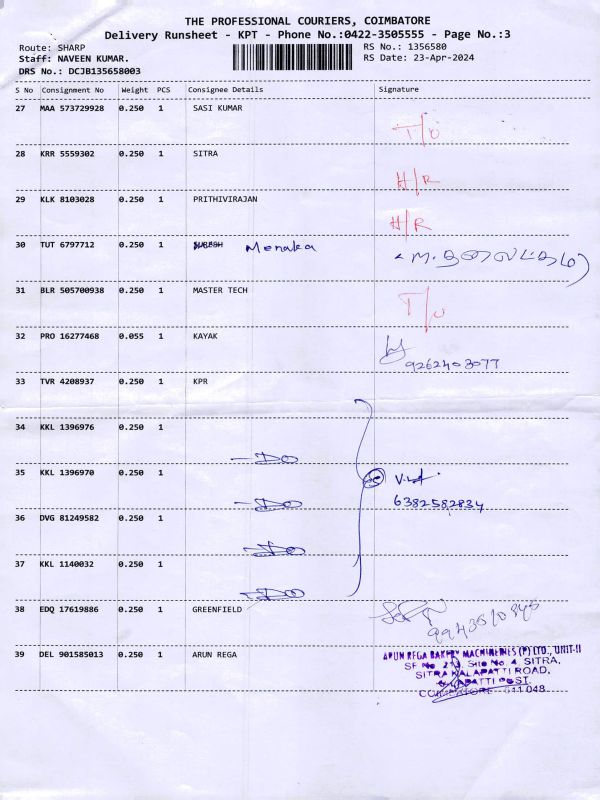 THE PROFESSIONAL COURIERS, COIMBATORE
Delivery Runsheet - KPT - Phone No.:0422-3505555 - Page No.:3
Route: SHARP
RS No.: 1356580
Staff: NAVEEN KUMAR.
RS Date: 23-Apr-2024
DRS No.: DCJB135658003
S No Consignment No Weight PCS Consignee Details Signature
27 MAA 573729928 0.250 1 SASI KUMAR T/O
28 KRR 5559302 0.250 1 SITRA H/R
29 KLK 8103028 0.250 1 PRITHIVIRAJAN H/R
30 TUT 6797712 0.250 1 Menaka
31 BLR 505700938 0.250 1 MASTER TECH T/O
32 PRO 16277468 0.055 1 KAYAK
9262403077
33 TVR 4208937 0.250 1 KPR
34 KKL 1396976 0.250 1
-DO
35 KKL 1396970 0.250 1
6382582834
-DO
36 DVG 81249582 0.250 1
-DO
37 KKL 1140032 0.250 1
-DO
38 EDQ 17619886 0.250 1 GREENFIELD
39 DEL 901585013 0.250 1 ARUN REGA
ARUN REGA BAKERY MACHINERIES (P) LTD., UNIT-II
SF No. Site No. 4, SITRA,
SITRA KALAPATTI ROAD,
KALAPATTI POST,
COIMBATORE - 641 048.